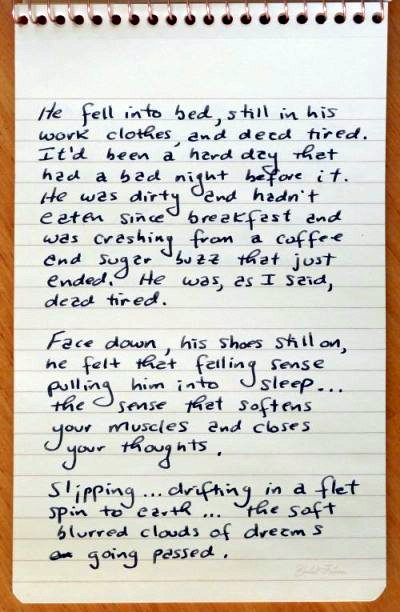 He fell into bed, still in his
work clothes, and dead tired.
It'd been a hard day that
had a bad night before it.
He was dirty and hadn't
eaten since breakfast and
was crashing from a coffee
and sugar buzz that just
ended. He was, as I said,
dead tired.
Face down, his shoes still on,
he felt that falling sense
pulling him into sleep...
the sense that softens
your muscles and closes
your thoughts.
Slipping... drifting in a flat
spin to earth... the soft
blurred clouds of dreams
going passed.